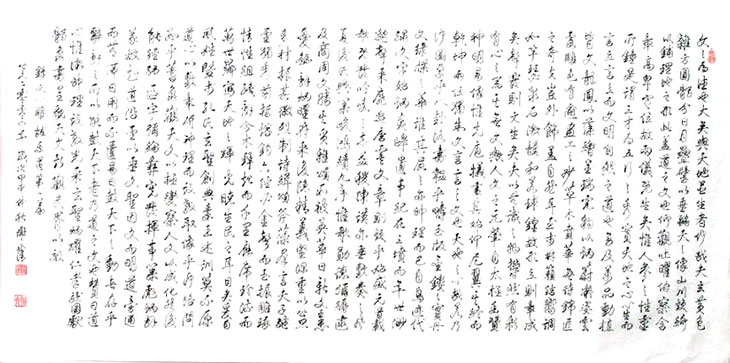 文之為德也大矣與天地並生者何哉夫玄黃色
雜方圓體分日月疊璧以垂麗天之象山川煥綺
以鋪理地之形此蓋道之文也仰觀吐曜俯察含
章高卑定位故兩儀既生矣惟人參之性靈
所鍾是謂三才為五行之秀實天地之心心生而
言立言立而文明自然之道也旁及萬品動植
皆文龍鳳以藻繪呈瑞虎豹以炳蔚凝姿雲霞
雕色有逾畫工之妙草木賁華無待錦匠
之奇夫豈外飾蓋自然耳至於林籟結響調
如竽瑟泉石激韻和若球鍠故形立則章成
矣聲發則文生矣夫以無識之物鬱然有彩
有心之器其無文歟人文之元肇自太極幽贊
神明易象惟先庖犧畫其始仲尼翼其終而
乾坤兩位獨制文言言之文也天地之心哉若乃
河圖孕八卦洛書韞乎九疇玉版金鏤之實丹
文綠牒之華誰其尸之亦神理而已自鳥跡代
繩文字始炳炎皞遺事紀在三墳而年世渺
邈聲采靡追唐虞文章則煥乎始盛元首載
歌既發吟詠之志益稷陳謨亦垂敷奏之風
夏后氏興業峻鴻績九序惟歌勳德彌縟逮
及商周文勝其質雅頌所被英華日新文王患
憂繇辭炳曜符采複隱精義堅深重以公旦
多材振其徽烈剬詩緝頌斧藻群言至夫子繼
聖獨秀前哲鎔鈞六經必金聲而玉振雕琢
情性組織辭令木鐸起而千里應席珍流而
萬世響寫天地之輝光曉生民之耳目矣爰自
風姓暨於孔氏玄聖創典素王述訓莫不原
道心以敷章研神理而設教取象乎河洛問
數乎蓍龜觀天文以極變察人文以成化然後
能經緯區宇彌綸彝憲發揮事業彪炳辭
義故知道沿聖以垂文聖因文而明道旁通
而無滯日用而不匱易曰鼓天下之動者存乎
辭辭之所以能鼓天下者乃道之文也贊曰道
心惟微神理設教光采玄聖炳耀仁孝龍圖獻
體龜書呈貌天文斯觀民胥以效
錄文心雕龍原道第一